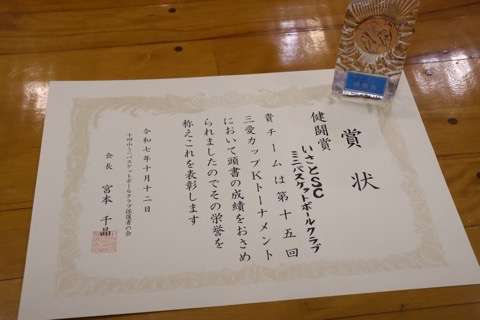 賞状
健闘賞
いさとSC
ミニバスケットボールクラブ
貴チームは第十五回
三愛カップKトーナメント
において頭書の成績をおさめ
られましたのでその栄誉を
称えこれを表彰します
令和七年十月十二日
会長 宮本千晶